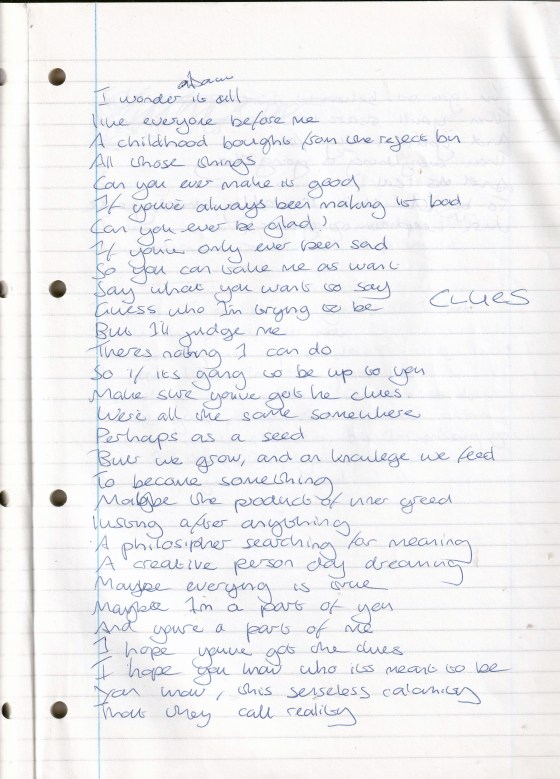 about
I wonder it all
like everyone before me
A childhood bought from the reject bin
All those things
Can you ever make it good
If you've always been making it bad
Can you ever be glad?
If you've only ever been sad
So you can take me as want
Say what you want to say
Guess who I'm trying to be
CLUES
But I'll judge me
Theres nothing I can do
So if its going to be up to you
Make sure you've got the clues.
We're all the same somewhere
Perhaps as a seed
But we grow, and on knowlege we feed
To become something
Maybe the product of inner greed
Lusting after anything
A philosipher searching for meaning
A creative person day dreaming
Maybe everying is true
Maybe I'm a part of you
And you're a part of me
I hope you've got the clues
I hope you know who its meant to be
You know, this senseless calamity
That they call reality